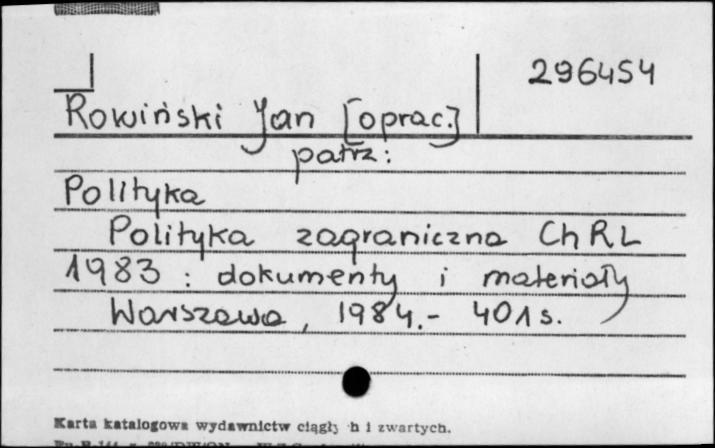 296454
Rowiński Jan [oprac.]
patrz:
Polityka
Polityka zagraniczna ChRL
1983 : dokumenty i materiały
Warszawa, 1984.- 401s.
Karta katalogowa wydawnictw ciągły h i zwartych.